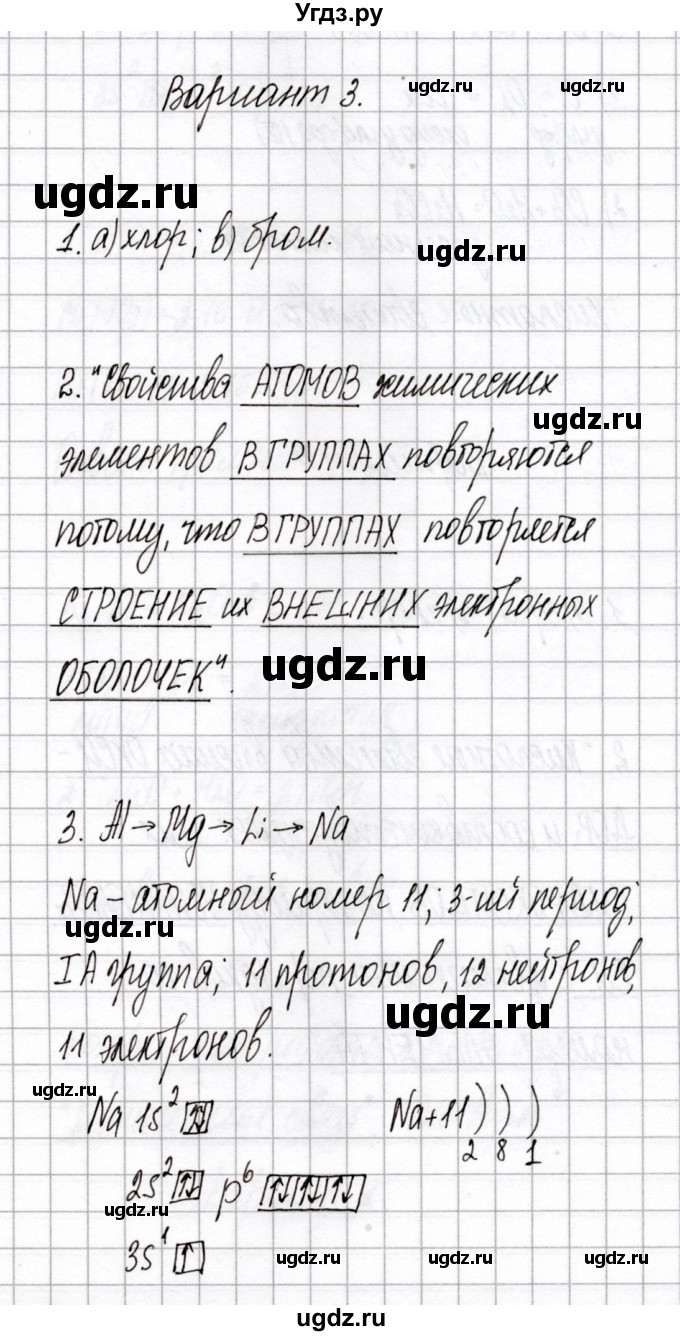 Угдз.ру
Вариант 3.
ugdz.ru
ugdz.ru
ugdz.ru
1. а) хлор; в) бром.
ugdz.ru
2. "Свойства АТОМОВ химических
ugdz.ru
элементов В ГРУППАХ повторяются
потому, что В ГРУППАХ повторяется
СТРОЕНИЕ их ВНЕШНИХ электронных
ОБОЛОЧЕК".
ugdz.ru
3. Al→Mg→Li→Na
Na – атомный номер 11; 3-ий период;
ugdz.ru
IA группа; 11 протонов, 12 нейтронов,
ugdz.ru
11 электронов.
ugdz.ru
Na 1s² ↑↓ Na+11) ) )
2 8 1
2s² ↑↓ p⁶ ↑↓ ↑↓ ↑↓
ugdz.ru
3s¹ ↑
ugdz.ru
ugdz.ru
ugdz.ru
ugdz.ru